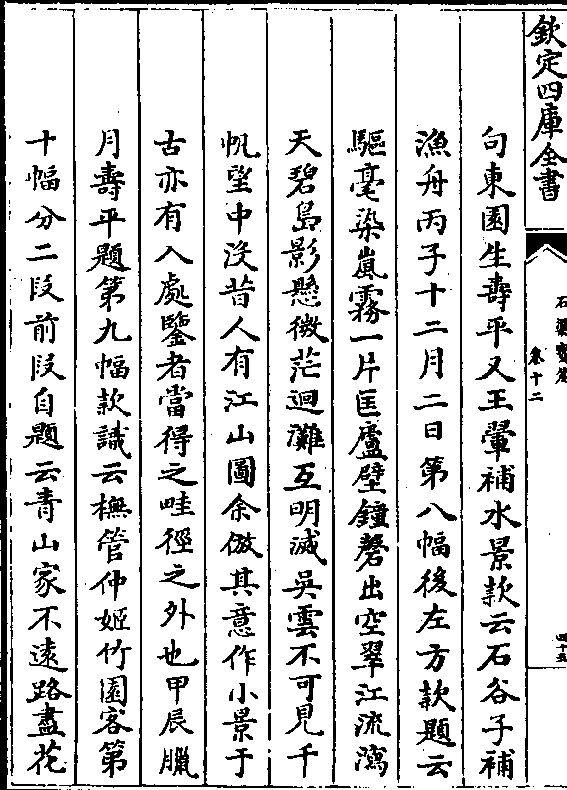 欽定四庫全書
石渠寳笈
卷十二
四十五
句東園生壽平又王翬補水景款云石谷子補
漁舟丙子十二月二日第八幅後左方款題云
驅毫染嵐霧一片匡廬壁鐘磬出空翠江流瀉
天碧島影懸微茫迴灘互明滅吳雲不可見千
帆望中没昔人有江山圖余倣其意作小景于
古亦有入處鑒者當得之畦徑之外也甲辰臘
月壽平題第九幅款識云橅管仲姬竹園客第
十幅分二段前段自題云青山家不遠路盡花